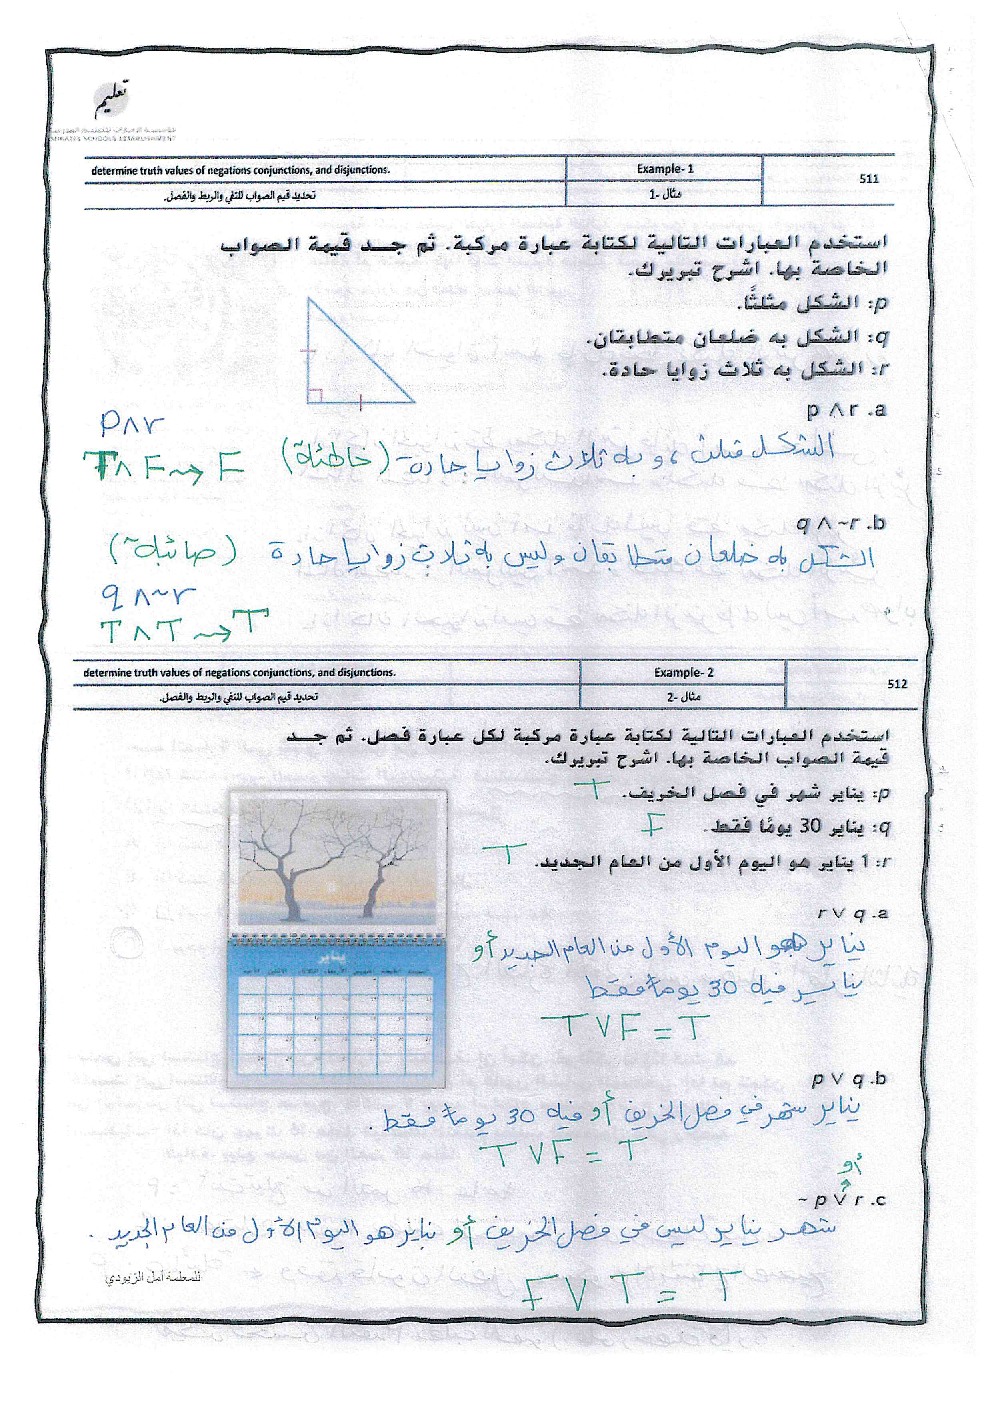 تعليم
determine truth values of negations conjunctions, and disjunctions. Example- 1 511
تحديد قيم الصواب للنفي والربط والفصل. مثال -1
استخدم العبارات التالية لكتابة عبارة مركبة. ثم جد قيمة الصواب
الخاصة بها. اشرح تبريرك.
p: الشكل مثلثًا.
q: الشكل به ضلعان متطابقان.
r: الشكل به ثلاث زوايا حادة.
p ∧ r .a
p∧r
الشكل مثلث ، و به ثلاث زوايا حادة (خاطئة)
T∧F → F
q ∧ ~r .b
الشكل به ضلعان متطابقان وليس به ثلاث زوايا حادة (صائبة)
q ∧ ~r
T ∧ T → T
determine truth values of negations conjunctions, and disjunctions. Example- 2 512
تحديد قيم الصواب للنفي والربط والفصل. مثال -2
استخدم العبارات التالية لكتابة عبارة مركبة لكل عبارة فصل. ثم جد
قيمة الصواب الخاصة بها. اشرح تبريرك.
p: يناير شهر في فصل الخريف. T
q: يناير 30 يومًا فقط. F
r: 1 يناير هو اليوم الأول من العام الجديد. T
r ∨ q .a
يناير هو اليوم الأول من العام الجديد أو
يناير فيه 30 يوماً فقط
T ∨ F = T
يناير
p ∨ q .b
يناير شهر في فصل الخريف أو فيه 30 يوماً فقط .
T ∨ F = T
أو
~ p ∨ r .c
شهر يناير ليس في فصل الخريف أو يناير هو اليوم الأول من العام الجديد .
للمعلمة أمل الزيودي
F ∨ T = T